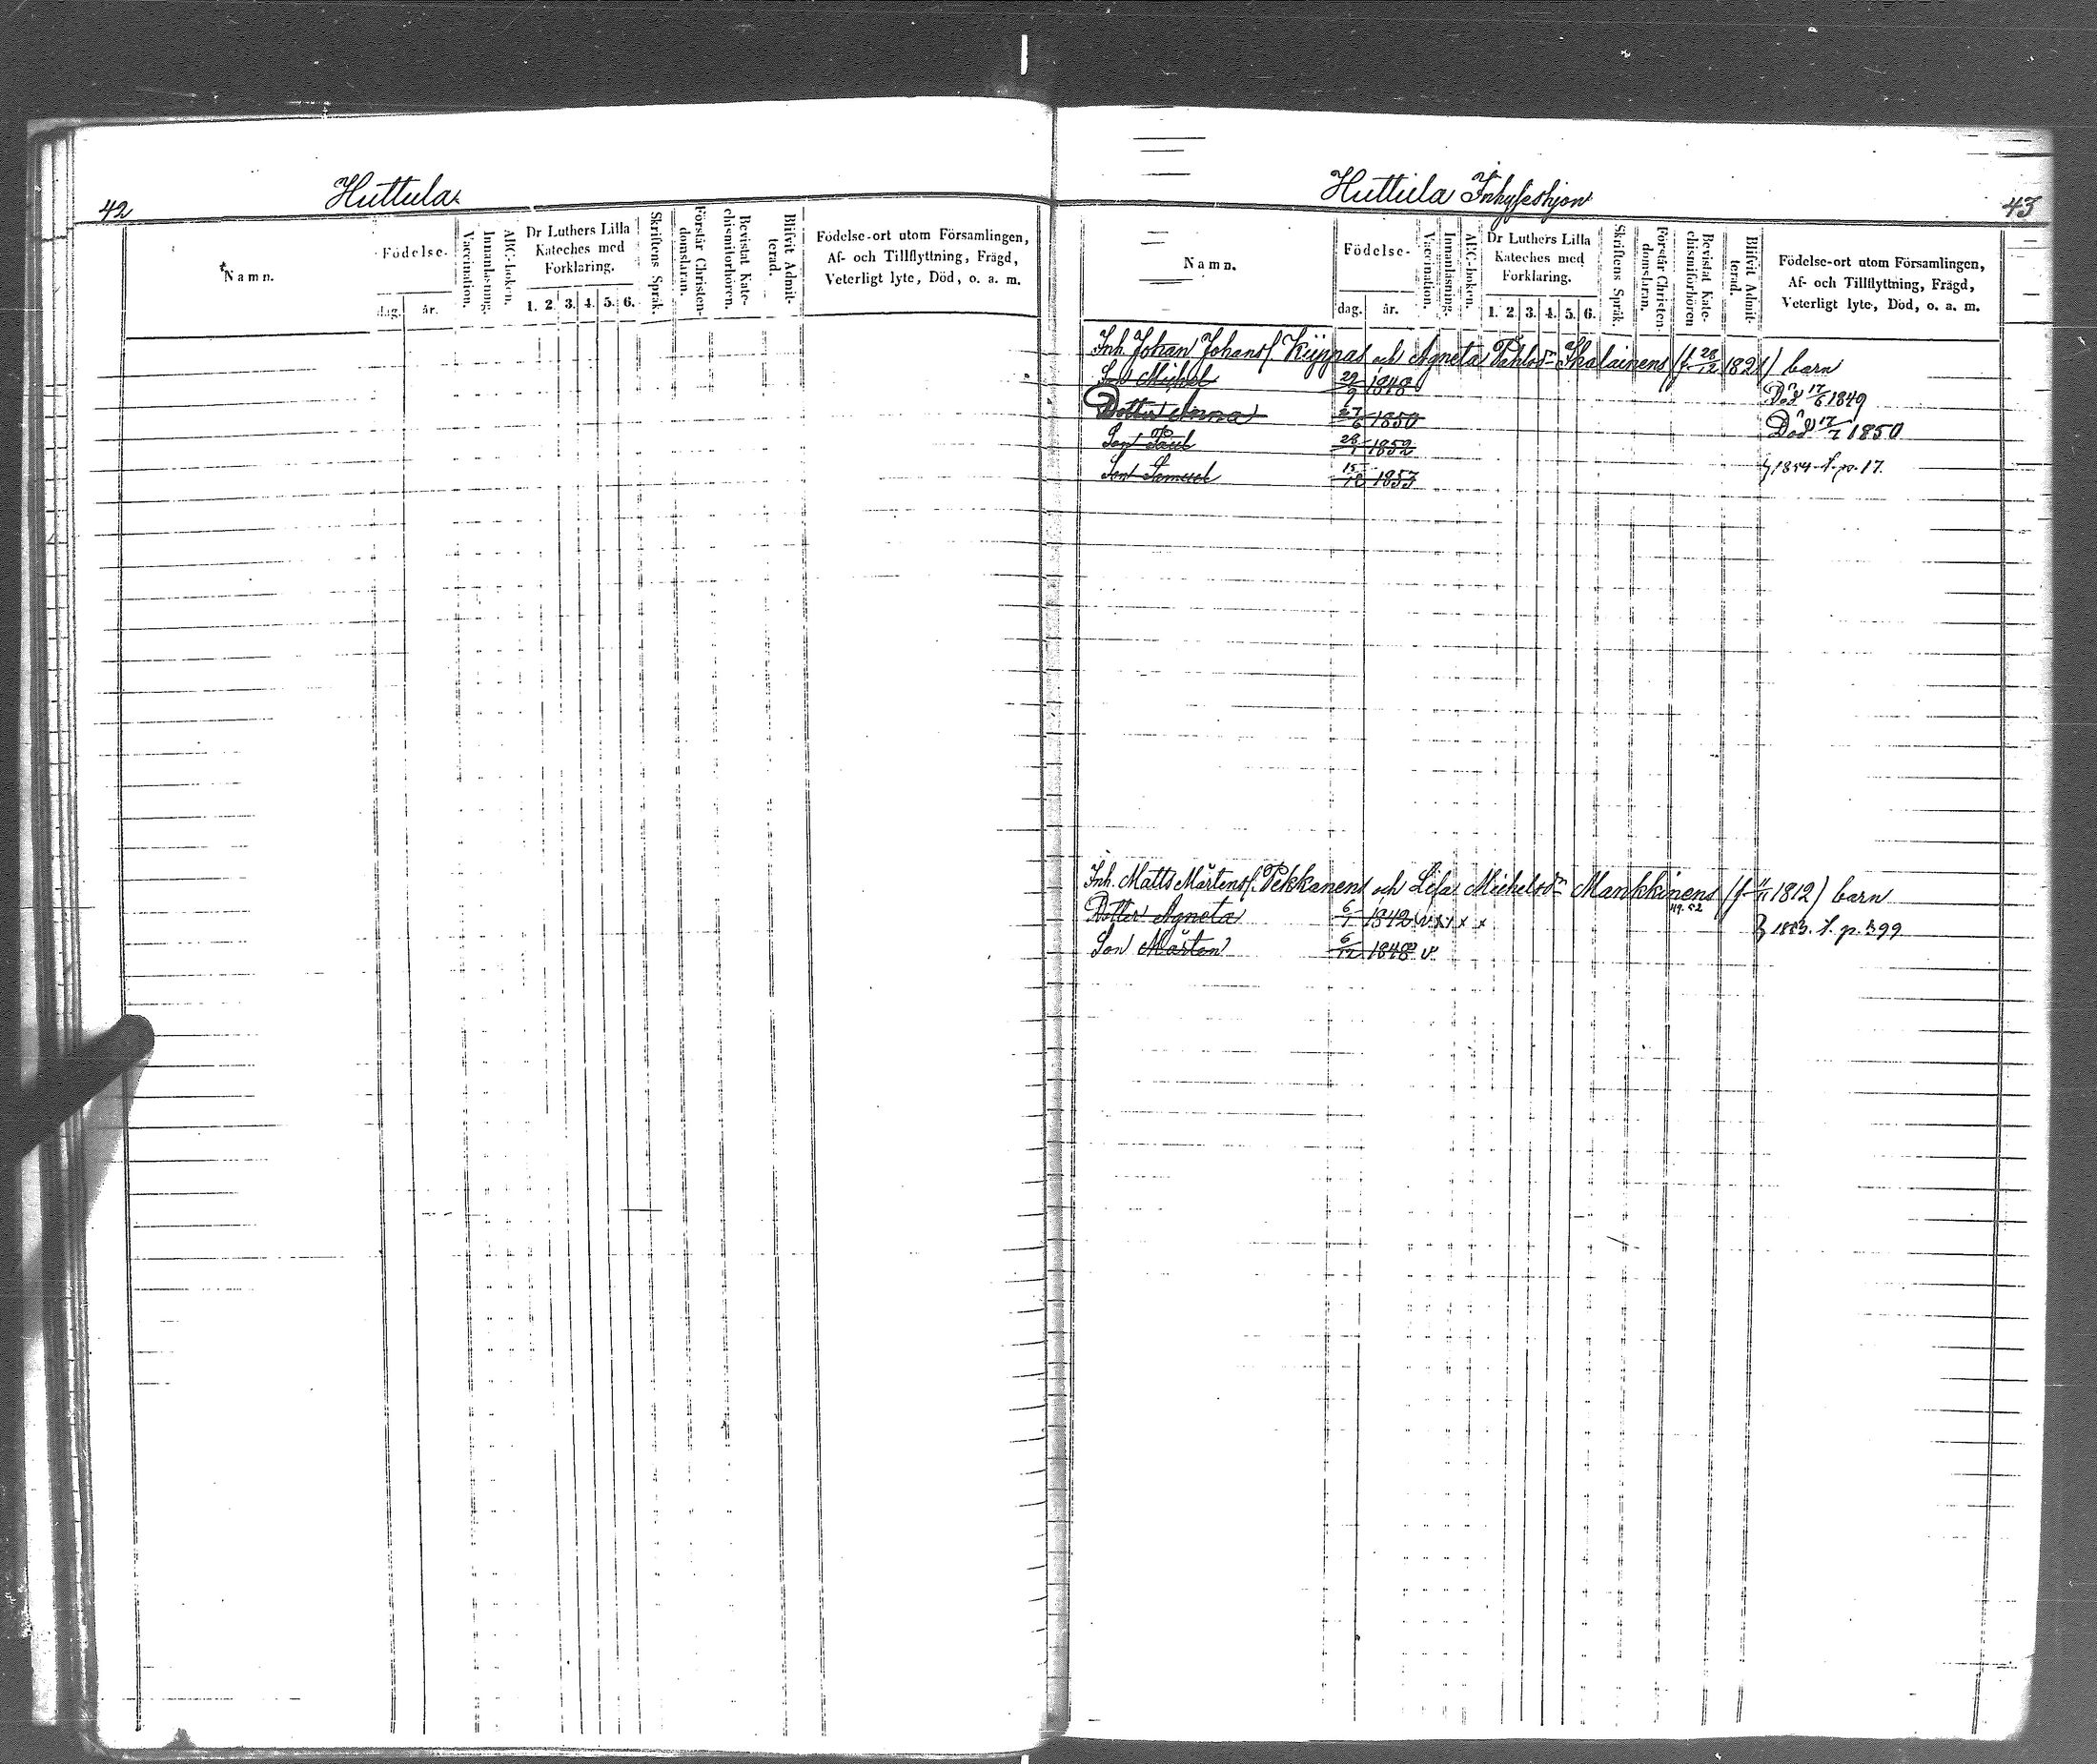 42
Huttula
Namn.
Födelse-
dag.
år.
Vaccination.
Innanläsning.
ABC-boken.
Dr Luthers Lilla
Kateches med
Förklaring.
1. 2. 3. 4. 5. 6.
Skriftens Språk.
Förstår Christen-
domsläran.
Bevistat Kate-
chismiförhören.
Blifvit Admit-
terad.
Födelse-ort utom Församlingen,
Af- och Tillflyttning, Frägd,
Veterligt lyte, Död, o. a. m.
Huttula Inhyseshjon
43
Namn.
Födelse-
dag.
år.
Vaccination.
Innanläsning.
ABC-boken.
Dr Luthers Lilla
Kateches med
Förklaring.
1. 2. 3. 4. 5. 6.
Skriftens Språk.
Förstår Christen-
domsläran.
Bevistat Kate-
chismiförhören
Blifvit Admit-
terad.
Födelse-ort utom Församlingen,
Af- och Tillflyttning, Frägd,
Veterligt lyte, Död, o. a. m.
Inh. Johan Johansf. Kiippas och Agneta Påhlsdr Ikalainens (f. 28/12 1821) barn
Son Michel 29/9 1848 Död 17/6 1849
Dotter Anna 27/6 1850 Död 17/7 1850
Son Paul 28/1 1852
Son Samuel 15/10 1853 1854 f. p. 17.
Inh. Matts Mårtensf. Pekkanens och Lisa Michelsdr Mankkinens (f. 1812) barn
Dotter Agneta 6/1 1842 v x x x x 49. 52
Son Mårten 6/12 1848 v 1853. f. p. 399